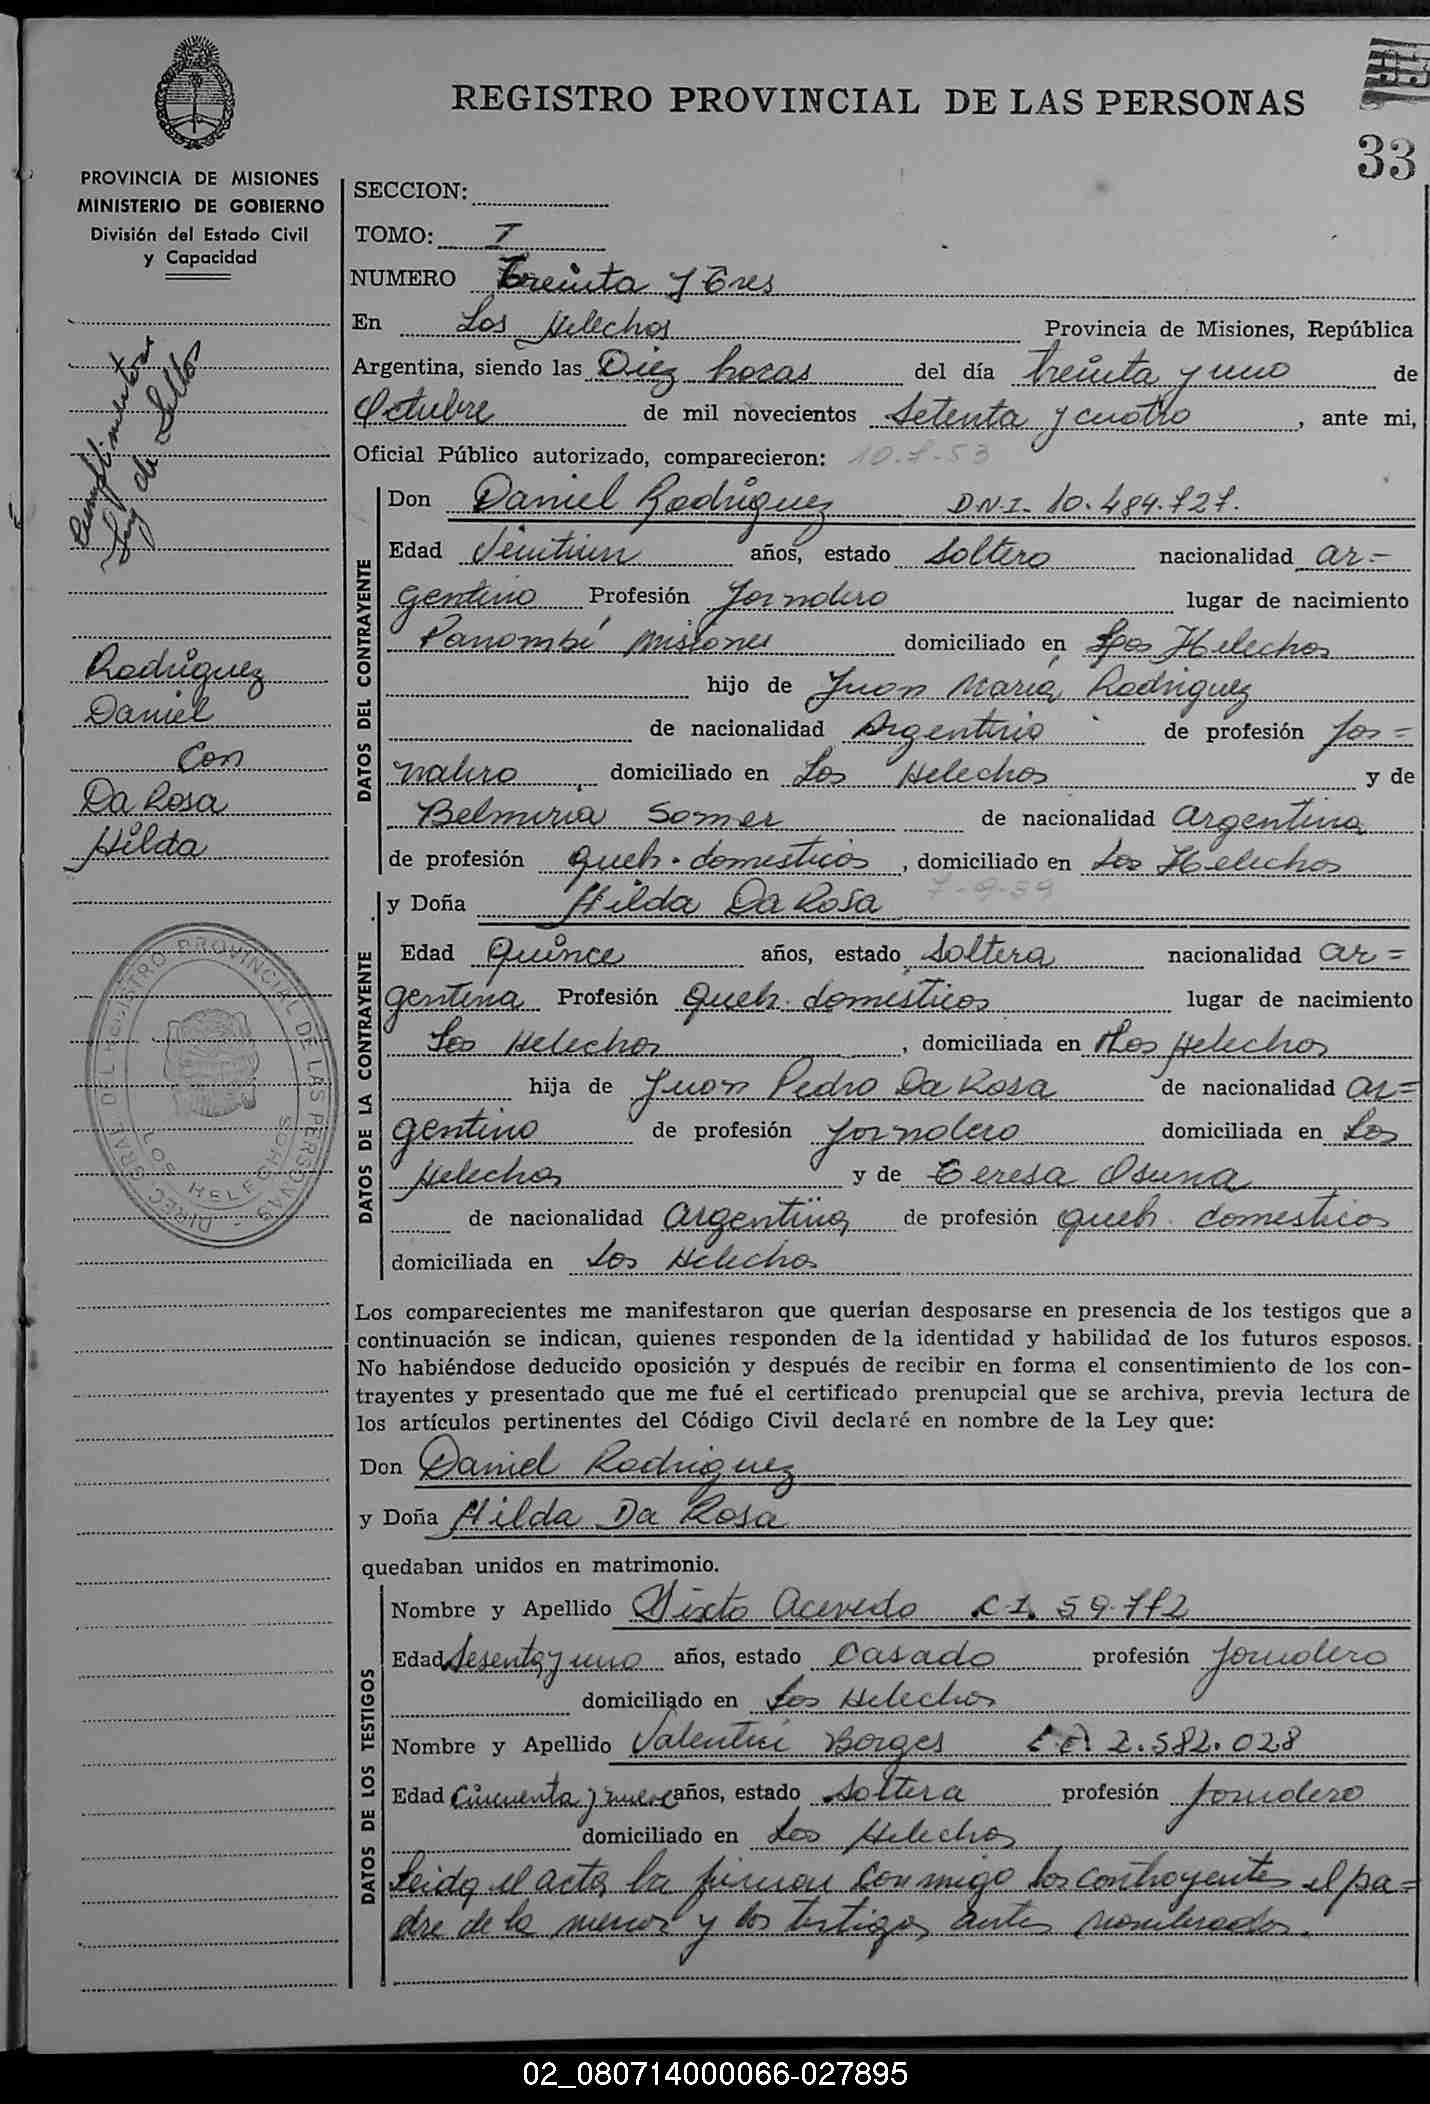 REGISTRO PROVINCIAL DE LAS PERSONAS
33
PROVINCIA DE MISIONES
MINISTERIO DE GOBIERNO
División del Estado Civil
y Capacidad
Ley de Sellos
Rodriguez
Daniel
Con
Da Rosa
Hilda
DIREC. GRAL. DEL REGISTRO PROVINCIAL DE LAS PERSONAS
LOS HELECHOS
SECCION:
TOMO: I
NUMERO Treinta y Tres
En Los Helechos Provincia de Misiones, República
Argentina, siendo las Diez horas del día treinta y uno de
Octubre de mil novecientos Setenta y cuatro, ante mi,
Oficial Público autorizado, comparecieron: 10.7.53
DATOS DEL CONTRAYENTE
Don Daniel Rodriguez D.N.I. 10.484.727.
Edad Veintiun años, estado Soltero nacionalidad ar=
gentino Profesión Jornalero lugar de nacimiento
Panambí Misiones domiciliado en Los Helechos
hijo de Juan María Rodriguez
de nacionalidad Argentino de profesión Jor=
nalero domiciliado en Los Helechos y de
Belmiria Somer de nacionalidad Argentina
de profesión Queh. domesticos, domiciliado en Los Helechos
DATOS DE LA CONTRAYENTE
y Doña Hilda Da Rosa 7-9-59
Edad Quince años, estado Soltera nacionalidad ar=
gentina Profesión Queh. domésticos lugar de nacimiento
Los Helechos, domiciliada en Los Helechos
hija de Juan Pedro Da Rosa de nacionalidad ar=
gentino de profesión Jornalero domiciliada en Los
Helechos y de Teresa Osuna
de nacionalidad Argentina de profesión queh. domesticos
domiciliada en Los Helechos
Los comparecientes me manifestaron que querían desposarse en presencia de los testigos que a
continuación se indican, quienes responden de la identidad y habilidad de los futuros esposos.
No habiéndose deducido oposición y después de recibir en forma el consentimiento de los con-
trayentes y presentado que me fué el certificado prenupcial que se archiva, previa lectura de
los artículos pertinentes del Código Civil declaré en nombre de la Ley que:
Don Daniel Rodriguez
y Doña Hilda Da Rosa
quedaban unidos en matrimonio.
DATOS DE LOS TESTIGOS
Nombre y Apellido Sixto Acevedo C.I. 59.772
Edad Sesenta y uno años, estado Casado profesión Jornalero
domiciliado en Los Helechos
Nombre y Apellido Valentin Borges 2.582.028
Edad Cincuenta y nueve años, estado Soltera profesión Jornalero
domiciliado en Los Helechos
Leida el acta, la firman conmigo los contrayentes el pa=
dre de la menor y los testigos antes nombrados.
02_080714000066-027895